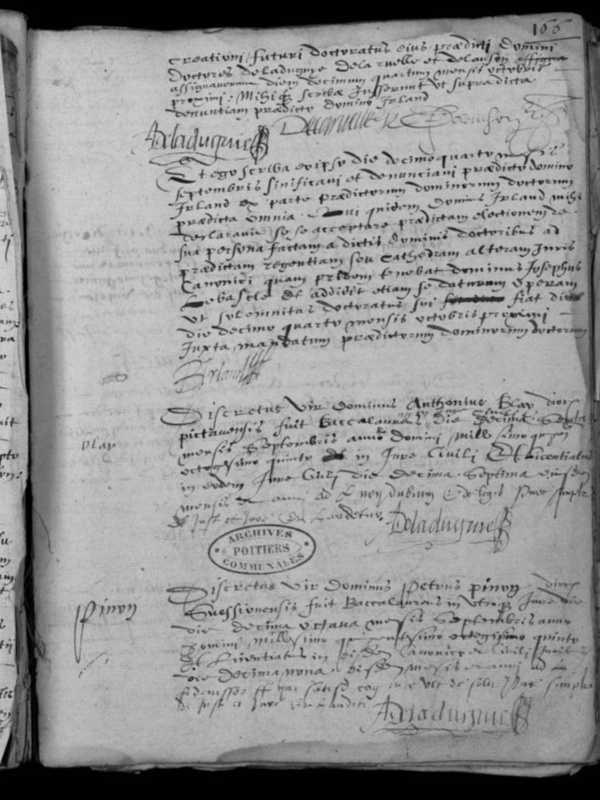 166
creationi futuri doctoratus eius prædicti domini
doctores deladugnie dela ruelle et delauson assigna
assignaverunt diem decimum quartum mensis octobris
proximi. Mihiq scribæ iusserunt ut supradicta
denuntiam prædicto domino Irland
Adeladugnie
Et ego scriba eo ipso die decimo quarto mensis
septembris significavi et denunciavi prædicto domino
Irland ex parte prædictorum dominorum doctorum
prædicta omnia. Qui quidem dominus Irland mihi
declaravit se acceptare prædictam electionem de
sua persona factam a dictis dominis doctoribus ad
prædictam regentiam seu cathedram alteram Juris
Canonici quam pridem tenebat dominus Josephus
Lebascle Et addidit etiam se daturum operam
ut solemnitas doctoratus sui fiat dicto
die decimo quarto mensis octobris proximi
Juxta mandatum prædictorum dominorum doctorum
Irland
Discretus vir dominus Anthonius Blay dioc
pictavensis fuit Baccalaureus die decima sexta
mensis septembris anno domini millesimo
octogesimo quinto in Jure Civili Et licentiatus
in eodem Jure Civili die decima septima eiusdem
mensis et anni ad L.
de Just et Jure
Adeladugnie
blay
ARCHIVES
POITIERS
COMMUNALES
Discretus vir dominus Petrus pinon dioc
Suessionensis fuit Baccalaureus in utroq Jure die
die decima octava mensis septembris anno
domini millesimo quingentesimo octogesimo quinto
Et licentiatus in eisdem Canonico et Civili Juribus
die decima nona eiusdem mensis et anni ad L.
de Just et Jure
Adeladugnie
pinon